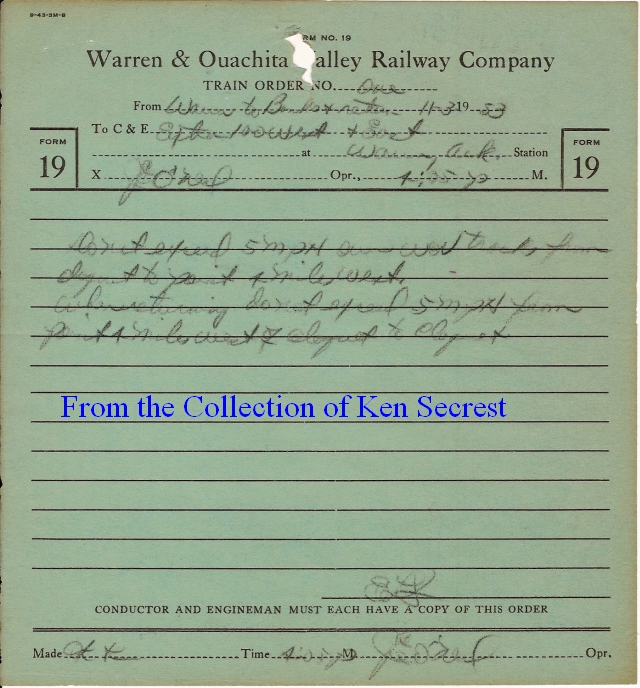 8-43-3M-B
RM NO. 19
Warren & Ouachita alley Railway Company
TRAIN ORDER NO. One
From Warren to Banks & return 11-3 19 53
To C & E Extra 100 West & East
FORM 19
at Warren, Ark. Station
FORM 19
X J E O'Neal Opr., 4:05 P M.
Do not exceed 5 MPH over W&OV tracks from
depot to point 4 miles west.
When returning do not exceed 5 MPH from
point 4 miles west of depot to depot
From the Collection of Ken Secrest
CONDUCTOR AND ENGINEMAN MUST EACH HAVE A COPY OF THIS ORDER
Made Time 4:05 P M. J E O'Neal Opr.